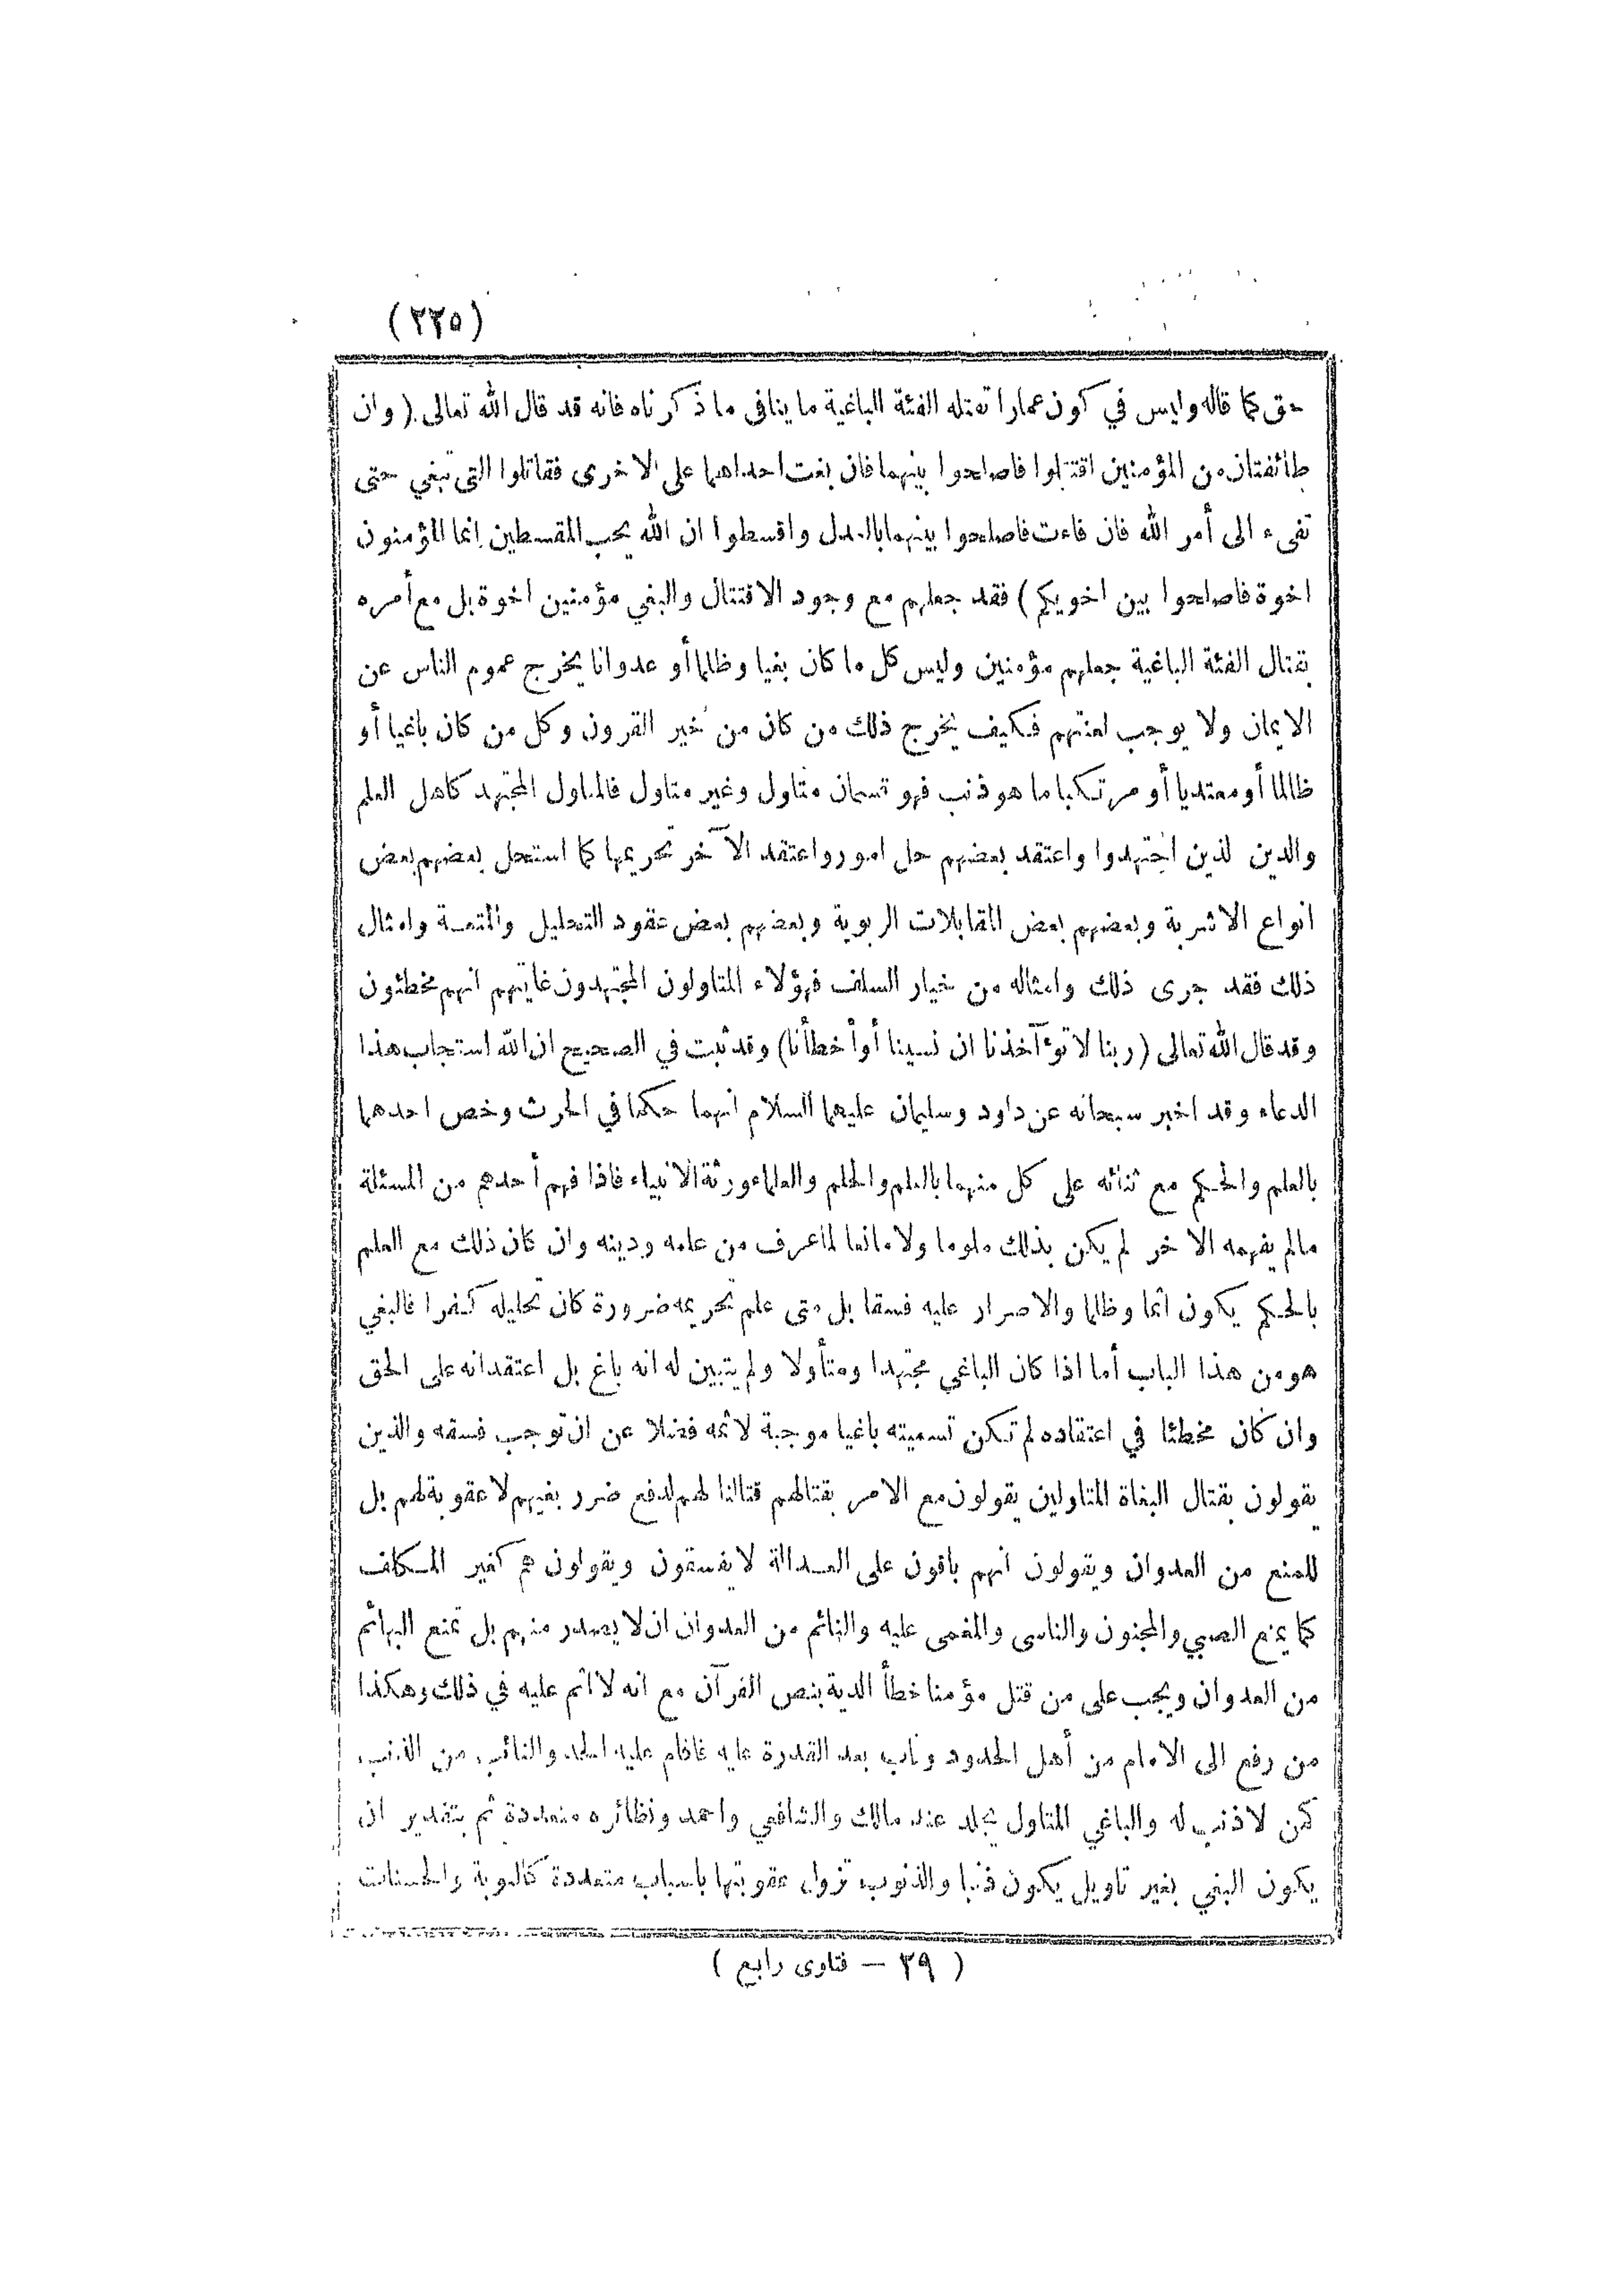 (٢٢٥)
حق كما قاله وليس في كون عمارا تقتله الفئة الباغية ما ينافى ما ذكرناه فانه قد قال الله تعالى (وان
طائفتان من المؤمنين اقتتلوا فاصلحوا بينهما فان بغت احداهما على الاخرى فقاتلوا التى تبغي حتى
تفىء الى أمر الله فان فاءت فاصلحوا بينهما بالعدل واقسطوا ان الله يحب المقسطين انما المؤمنون
اخوة فاصلحوا بين اخويكم) فقد جعلهم مع وجود الاقتتال والبغي مؤمنين اخوة بل مع أمره
بقتال الفئة الباغية جعلهم مؤمنين وليس كل ما كان بغيا وظلما أو عدوانا يخرج عموم الناس عن
الايمان ولا يوجب لعنتهم فكيف يخرج ذلك من كان من خير القرون وكل من كان باغيا أو
ظالما أو معتديا أو مرتكبا ما هو ذنب فهو قسمان متاول وغير متاول فالمتاول المجتهد كاهل العلم
والدين لذين اجتهدوا واعتقد بعضهم حل امور واعتقد الآخر تحريمها كما استحل بعضهم بعض
انواع الاشربة وبعضهم بعض المقابلات الربوية وبعضهم بعض عقود التحليل والمتعة وامثال
ذلك فقد جرى ذلك وامثاله من خيار السلف فهؤلاء المتاولون المجتهدون غايتهم انهم مخطئون
وقد قال الله تعالى (ربنا لا تؤآخذنا ان نسينا أو أخطأنا) وقد ثبت في الصحيح ان الله استجاب هذا
الدعاء وقد اخبر سبحانه عن داود وسليمان عليهما السلام انهما حكما في الحرث وخص احدهما
بالعلم والحكم مع ثنائه على كل منهما بالعلم والحلم والعلماء ورثة الانبياء فاذا فهم أحدهم من المسئلة
مالم يفهمه الاخر لم يكن بذلك ملوما ولا مانعا لما عرف من علمه ودينه وان كان ذلك مع العلم
بالحكم يكون اثما وظلما والاصرار عليه فسقا بل متى علم تحريمه ضرورة كان تحليله كفرا فالبغي
هو من هذا الباب أما اذا كان الباغي مجتهدا ومتأولا ولم يتبين له انه باغ بل اعتقد انه على الحق
وان كان مخطئا في اعتقاده لم تكن تسميته باغيا موجبة لاثمه فضلا عن ان توجب فسقه والذين
يقولون بقتال البغاة المتاولين يقولون مع الامر بقتالهم قتالنا لهم لدفع ضرر بغيهم لا عقوبة لهم بل
للمنع من العدوان ويقولون انهم باقون على العدالة لا يفسقون ويقولون هم كغير المكلف
كما يمنع الصبي والمجنون والناسى والمغمى عليه والنائم من العدوان ان لا يصدر منهم بل تمنع البهائم
من العدوان ويجب على من قتل مؤمنا خطأ الدية بنص القرآن مع انه لا اثم عليه في ذلك وهكذا
من رفع الى الامام من أهل الحدود وتاب بعد القدرة عليه فاقام عليه الحد والتائب من الذنب
كمن لا ذنب له والباغي المتاول يجلد عند مالك والشافعي واحمد ونظائره متعددة ثم بتقدير ان
يكون البغي بغير تاويل يكون ذنبا والذنوب تزول عقوبتها باسباب متعددة كالتوبة والحسنات
(٢٩ — فتاوى رابع)